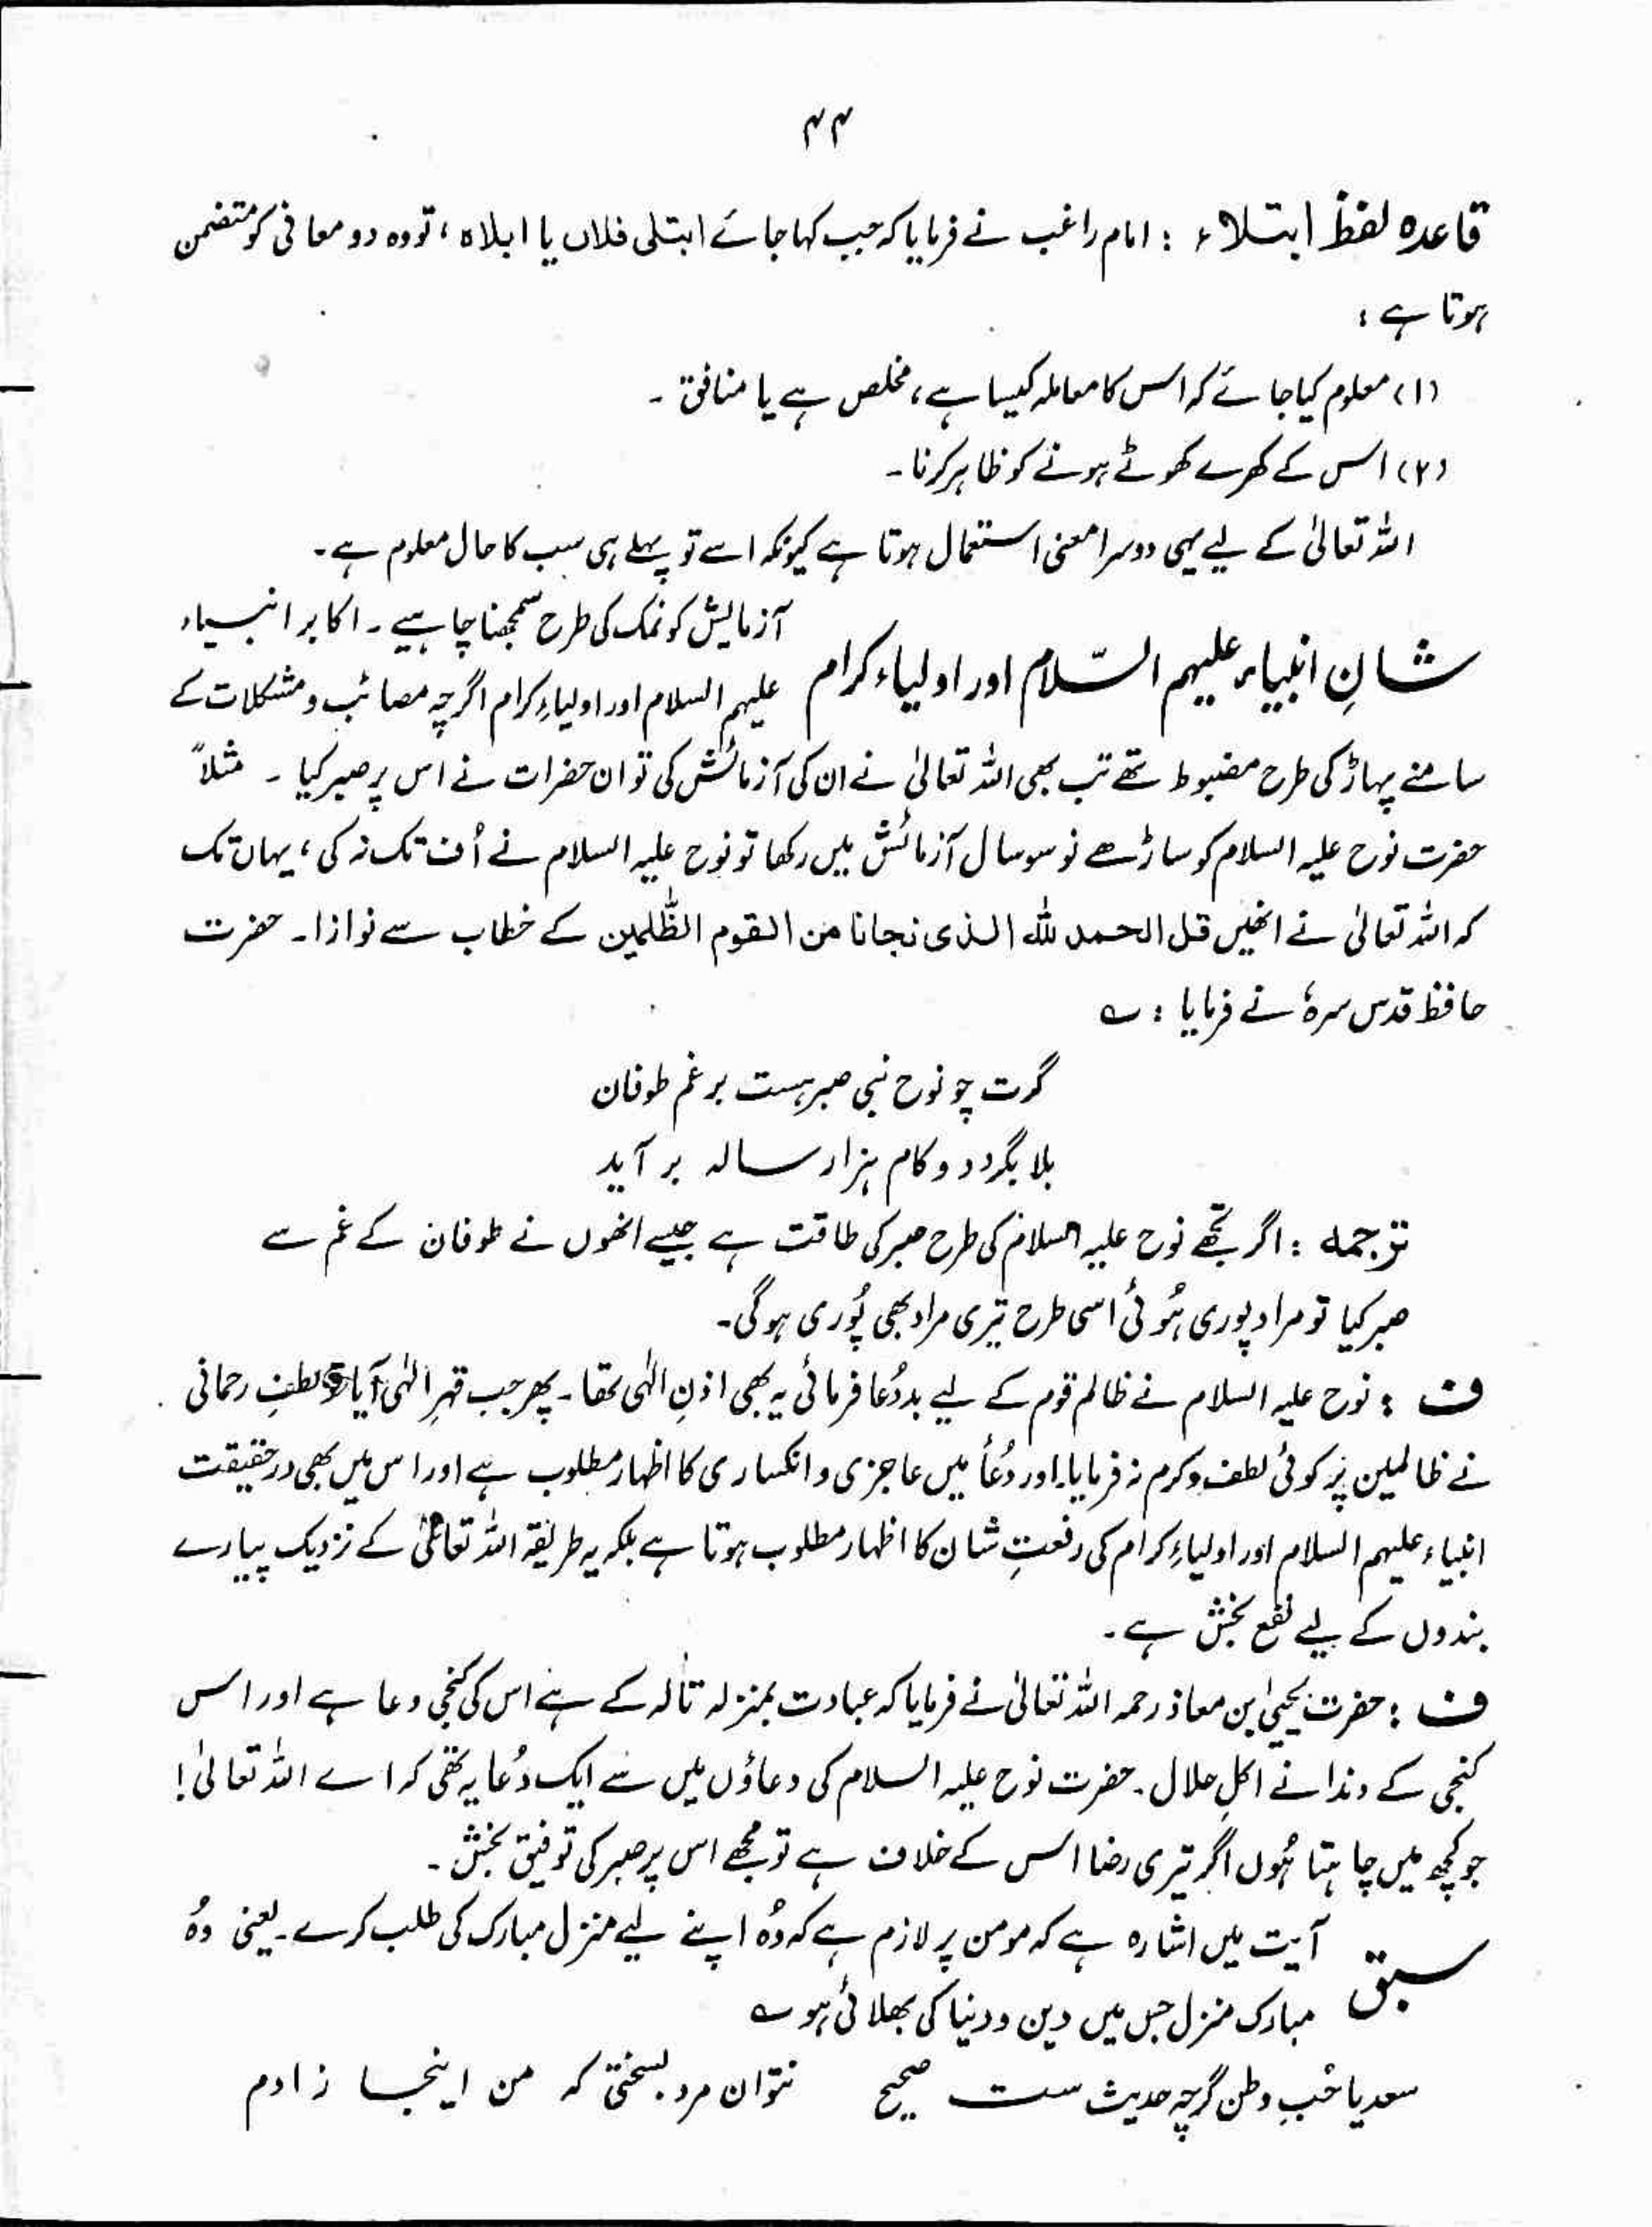 ۴۴
قاعدہ لفظ ابتلاء : امام راغب نے فرمایا کہ جب کہا جائے ابتلی فلاں یا ابلاہ ، تو وہ دو معانی کو متضمن
ہوتا ہے :
(۱) معلوم کیا جائے کہ اس کا معاملہ کیسا ہے ، مخلص ہے یا منافق ۔
(۲) اس کے کھرے کھوٹے ہونے کو ظاہر کرنا ۔
اللہ تعالیٰ کے لیے یہی دوسرا معنی استعمال ہوتا ہے کیونکہ اسے تو پہلے ہی سب کا حال معلوم ہے ۔
شانِ انبیاء علیہم السّلام اور اولیاء کرام
آزمایش کو نمک کی طرح سمجھنا چاہیے ۔ اکابر انبیاء
علیہم السلام اور اولیاءِ کرام اگرچہ مصائب و مشکلات کے
سامنے پہاڑ کی طرح مضبوط تھے تب بھی اللہ تعالیٰ نے ان کی آزمائش کی تو ان حضرات نے اس پر صبر کیا ۔ مثلاً
حضرت نوح علیہ السلام کو ساڑھے نو سو سال آزمائش میں رکھا تو نوح علیہ السلام نے اُف تک نہ کی ، یہاں تک
کہ اللہ تعالیٰ نے انھیں قل الحمد للہ الذی نجانا من القوم الظّٰلمین کے خطاب سے نوازا ۔ حضرت
حافظ قدس سرہٗ نے فرمایا : ؎
گرت چو نوح نبی صبر ہست بر غم طوفان
بلا بگردد و کام ہزار سالہ بر آید
ترجمہ : اگر تجھے نوح علیہ السلام کی طرح صبر کی طاقت ہے جیسے انھوں نے طوفان کے غم سے
صبر کیا تو مراد پوری ہُوئی اسی طرح تیری مراد بھی پُوری ہو گی ۔
ف : نوح علیہ السلام نے ظالم قوم کے لیے بددُعا فرمائی یہ بھی اذنِ الٰہی تھا ۔ پھر جب قہرِ الٰہی آیا تو لطفِ رحمانی
نے ظالمین پر کوئی لطف و کرم نہ فرمایا۔ اور دُعا میں عاجزی و انکساری کا اظہار مطلوب ہے اور اس میں بھی درحقیقت
انبیاء علیہم السلام اور اولیاءِ کرام کی رفعتِ شان کا اظہار مطلوب ہوتا ہے بلکہ یہ طریقہ اللہ تعالیٰ کے نزدیک پیارے
بندوں کے لیے نفع بخش ہے ۔
ف : حضرت یحییٰ بن معاذ رحمہ اللہ تعالیٰ نے فرمایا کہ عبادت بمنزلہ تالہ کے ہے اس کی کنجی دعا ہے اور اس
کنجی کے دندانے اکلِ حلال ۔ حضرت نوح علیہ السلام کی دعاؤں میں سے ایک دُعا یہ تھی کہ اے اللہ تعالیٰ !
جو کچھ میں چاہتا ہُوں اگر تیری رضا اس کے خلاف ہے تو مجھے اس پر صبر کی توفیق بخش ۔
سبق آیت میں اشارہ ہے کہ مومن پر لازم ہے کہ وُہ اپنے لیے منزل مبارک کی طلب کرے ۔ یعنی وُہ
مبارک منزل جس میں دین و دنیا کی بھلائی ہو ؎
سعدیا حُبِ وطن گرچہ حدیث ست صحیح نتوان مرد بسختی کہ من اینجا زادم